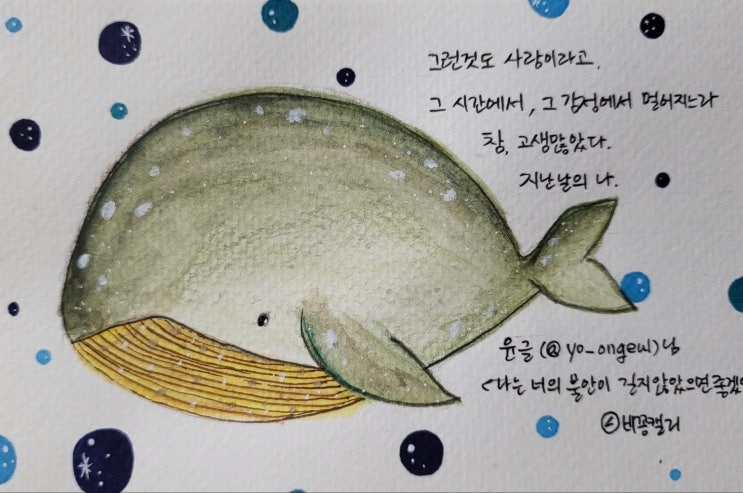 그런것도 사랑이라고,
그 시간에서, 그 감정에서 멀어지느라
참, 고생많았다.
지난날의 나.
윤글 (@yo_ongeul)님
<나는 너의 불안이 길지않았으면좋겠